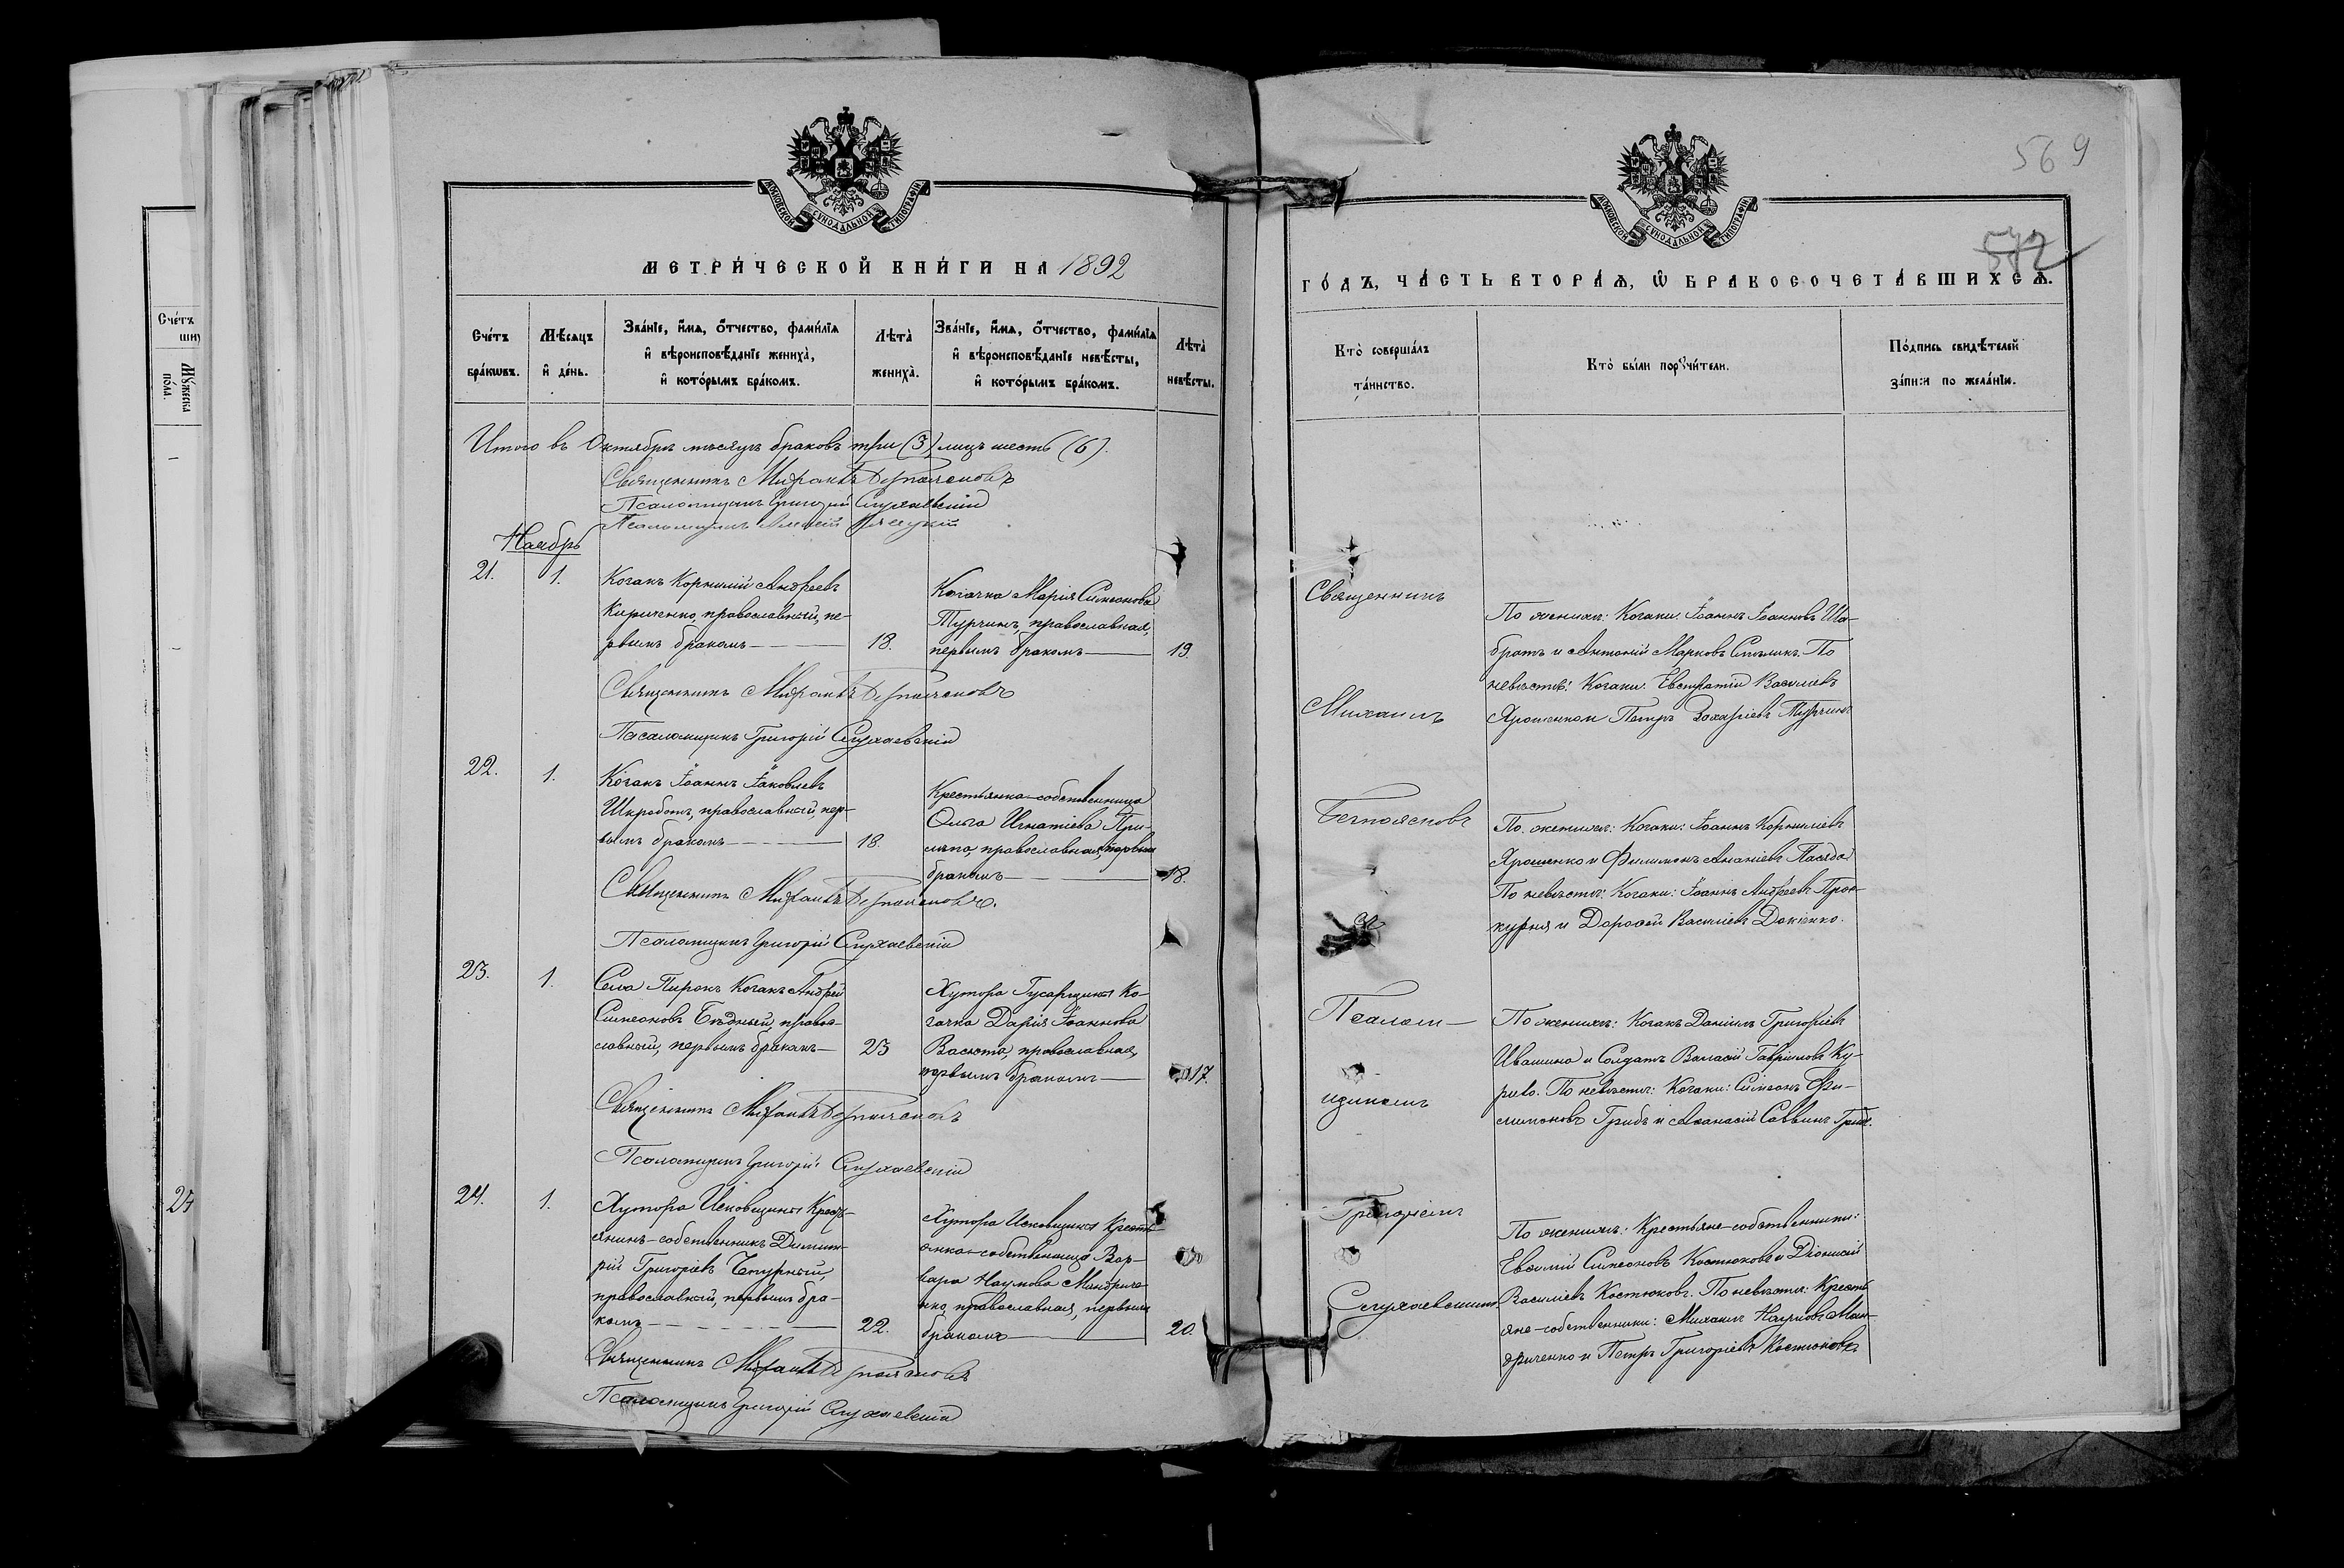 МОСКОВСКОЙ СѴНОДАЛЬНОЙ ТИПОГРАФІИ
МЕТРИ́ЧЕСКОЙ КНИ́ГИ НА 1892
Сче́тъ бра́кѡвъ.
Мѣ́сяцъ и҆ де́нь.
Зва́нїе, и҆́мѧ, ѻ҆́тчество, фами́лїѧ
и҆ вѣроисповѣ́данїе жениха̀,
и҆ кото́рымъ бра́комъ.
Лѣта̀ жениха̀.
Зва́нїе, и҆́мѧ, ѻ҆́тчество, фами́лїѧ
и҆ вѣроисповѣ́данїе невѣ́сты,
и҆ кото́рымъ бра́комъ.
Лѣта̀ невѣ́сты.
Итого въ Октябрѣ мѣсяцѣ браковъ три (3) лицъ шесть (6).
Священникъ Михаилъ
Псаломщикъ Григорій Слухаевскій
Псаломщикъ
Ноябрь
21.
1.
Козакъ Корнилій Андреевъ
Кириченко, православный, пе-
рвымъ бракомъ
18.
Козачка Марія Симеонова
Турчинъ, православная,
первымъ бракомъ
19.
Священникъ Михаилъ
Псаломщикъ Григорій Слухаевскій
22.
1.
Козакъ Іоаннъ Іаковлевъ
Шкроботъ, православный, пер-
вымъ бракомъ
18.
Крестьянка-собственница
Ольга Игнатіева При-
православная, первымъ
бракомъ
18.
Священникъ Михаилъ
Псаломщикъ Григорій Слухаевскій
23.
1.
Села Пирокъ Козакъ Андрей
Симеоновъ Бѣдный, право-
славный, первымъ бракомъ
23
Хутора Гусарщины Ко-
зачка Дарія Іоаннова
Васюта, православная,
первымъ бракомъ
17.
Священникъ Михаилъ
Псаломщикъ Григорій Слухаевскій
24.
1.
Хутора Исковщины Кресть-
янинъ-собственникъ Димит-
рій Григоріевъ
православный, первымъ бра-
комъ
22.
Хутора Исковщины Кресть-
янка-собственница Вар-
вара Наумова Мандриче-
нко, православная, первымъ
бракомъ
20.
Священникъ Михаилъ
Псаломщикъ Григорій Слухаевскій
569
572
МОСКОВСКОЙ СѴНОДАЛЬНОЙ ТИПОГРАФІИ
ГО́ДЪ, ЧА́СТЬ ВТОРА́Ѧ, Ѡ҆ БРАКОСОЧЕТА́ВШИХСѦ.
Кто̀ соверша́лъ
та́инство.
Кто̀ бы́ли порꙋчи́тели.
По́дпись свидѣ́телей
за́писи по жела́нїю.
Священникъ
Михаилъ
Безпоясковъ
Псалом-
щикомъ
Григоріемъ
Слухаевскимъ
По женихѣ: Козаки: Іоаннъ Іоанновъ
братъ и Антоній Марковъ По
невѣстѣ: Козаки: Евстратій Василіевъ
Ярошенко и Петръ Захаріевъ Турчинъ
По женихѣ: Козаки: Іоаннъ Корниліевъ
Ярошенко и Филимонъ Ананіевъ
По невѣстѣ: Козаки: Іоаннъ Андреевъ Прос-
курня и Дорофей Василіевъ Доценко.
По женихѣ: Козакъ Даніилъ Григоріевъ
Ивашина и Солдатъ Власій Гавріиловъ Ку-
рило. По невѣстѣ: Козаки: Симеонъ Фи-
лимоновъ Грибъ и Афанасій Саввинъ Грибъ.
По женихѣ: Крестьяне-собственники:
Евфимій Симеоновъ Костюковъ и Діонисій
Василіевъ Костюковъ. По невѣстѣ: Кресть-
яне-собственники: Михаилъ Наумовъ Ман-
дриченко и Петръ Григоріевъ Костюковъ